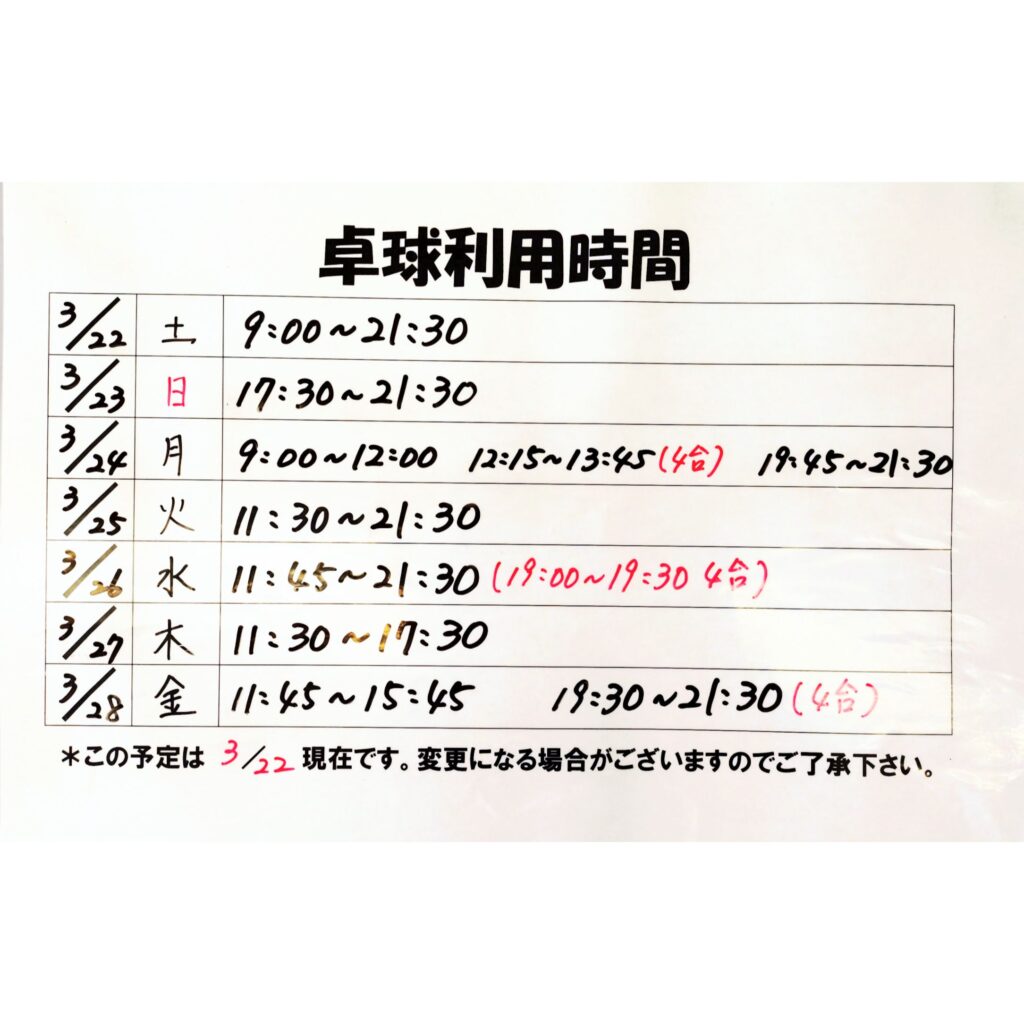 卓球利用時間
3/22 土 9:00~21:30
3/23 日 17:30~21:30
3/24 月 9:00~12:00 12:15~13:45(4台) 19:45~21:30
3/25 火 11:30~21:30
3/26 水 11:45~21:30(19:00~19:30 4台)
3/27 木 11:30~17:30
3/28 金 11:45~15:45 19:30~21:30(4台)
*この予定は 3/22 現在です。変更になる場合がございますのでご了承下さい。